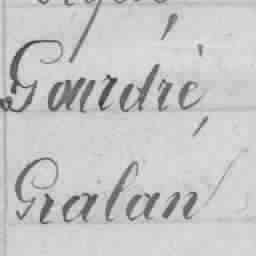 Gourdrè,
Gralan